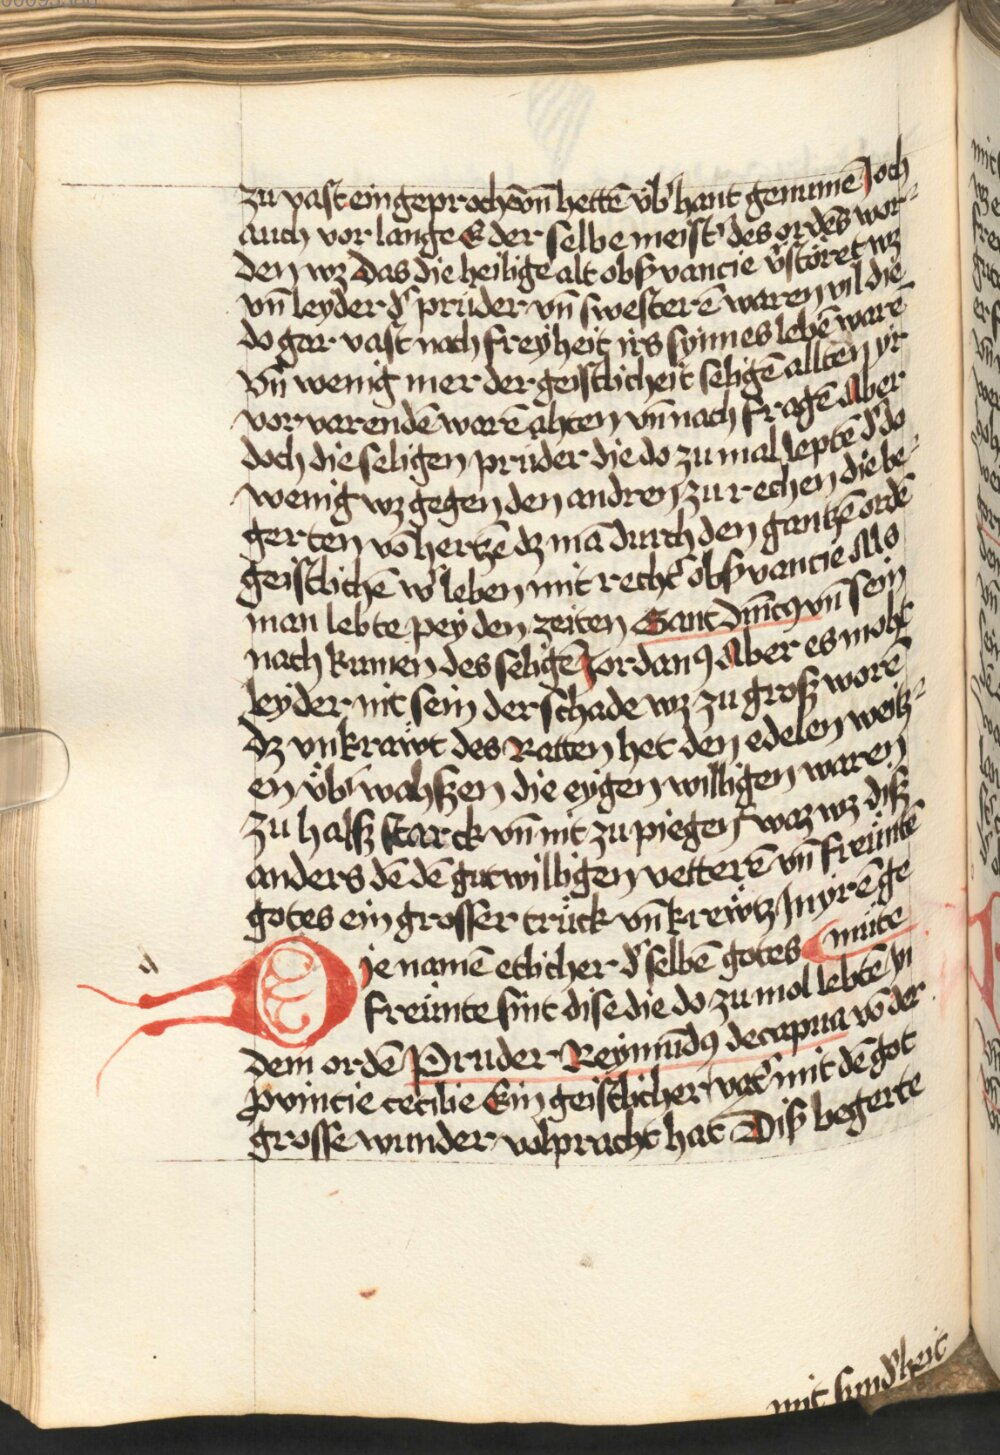 zu vast ein geprochē vn̄ hettē vb' hant genumē Joch
auch vor lange E der selbe meist' des ordēs wor-
den wz Das die heilige alt obs'vancie v'störet wz
vn̄ leyder d' prüder vn̄ swesterē waren vil die
do gar vast nach freyheit irs synnes lebē warē
vn̄ wenig mer der geistlicheit seligē allten yr
vorvarendē warē ahten vn̄ nach fragē Aber
doch die seligen prüder die do zu mal lepte͂ d' do
wenig wz gegen den andren zu rechen die be-
gerten vō hertzē dz mā durch den gantzē ordē
geistlichē w' leben mit recht' obs'vancie Als
man lebte pey den zeiten Sant Dm̄icꝰ vn̄ sein
nach kumen des seligē Jordanꝰ Aber es moht
leyder nit sein der schade wz zu groß worē
dz vnkrawt des Ratten het den edelen weitz-
en vb' wahßen die eygen willigen waren
zu halß starck vn̄ nit zu piegen waz wz diß
anders dē dē gutwilligen vetterē vn̄ freüntē
gotes ein grosser trück vn̄ krewtz In yrē ge
müte
Die namē etlicher d' selbē gotes
freünte sint dise die do zu mol lebtē yn
dem ordē Pruder Reymūdꝰ decapua vō der
provincie cecilie Ein geistlicher vat' mit dē got
grosse wunder volpracht hat Diß begerte
mit sund'heit